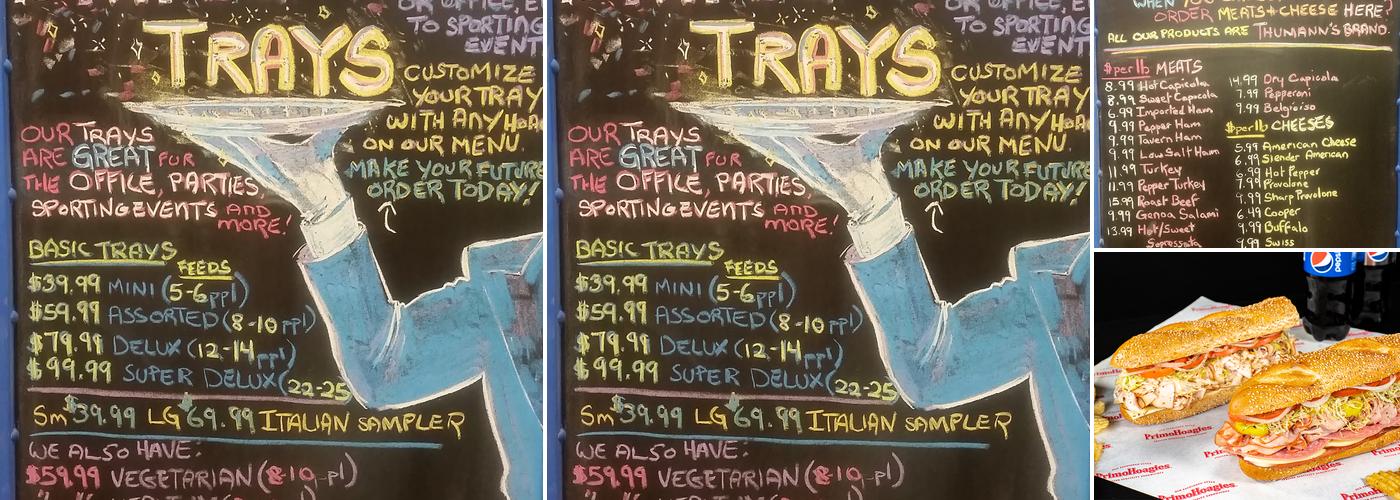 OR OFFICE, E
TO SPORTING
EVENT
TRAYS
CUSTOMIZE
YOUR TRAY
WITH ANY HOA
ON OUR MENU.
MAKE YOUR FUTURE
ORDER TODAY!
OUR TRAYS
ARE GREAT FOR
THE OFFICE, PARTIES,
SPORTING EVENTS AND
MORE!
BASIC TRAYS
FEEDS
$39.99 MINI (5-6 ppl)
$59.99 ASSORTED (8-10 ppl)
$79.99 DELUX (12-14 ppl)
$99.99 SUPER DELUX (22-25
Sm $39.99 LG $69.99 ITALIAN SAMPLER
WE ALSO HAVE:
$59.99 VEGETARIAN (8-10 ppl)
OR OFFICE, E
TO SPORTING
EVENT
TRAYS
CUSTOMIZE
YOUR TRAY
WITH ANY HOA
ON OUR MENU.
MAKE YOUR FUTURE
ORDER TODAY!
OUR TRAYS
ARE GREAT FOR
THE OFFICE, PARTIES,
SPORTING EVENTS AND
MORE!
BASIC TRAYS
FEEDS
$39.99 MINI (5-6 ppl)
$59.99 ASSORTED (8-10 ppl)
$79.99 DELUX (12-14 ppl)
$99.99 SUPER DELUX (22-25
Sm $39.99 LG $69.99 ITALIAN SAMPLER
WE ALSO HAVE:
$59.99 VEGETARIAN (8-10 ppl)
WHEN YOU
ORDER MEATS + CHEESE HERE?
ALL OUR PRODUCTS ARE THUMANN'S BRAND.
$per lb MEATS
8.99 Hot Capicola
8.99 Sweet Capicola
6.99 Imported Ham
9.99 Pepper Ham
9.99 Tavern Ham
9.99 Low Salt Ham
11.99 Turkey
11.99 Pepper Turkey
15.99 Roast Beef
9.99 Genoa Salami
13.99 Hot/Sweet
Sopressata
14.99 Dry Capicola
7.99 Pepperoni
9.99 Belgioiso
$per lb CHEESES
5.99 American Cheese
6.99 Slender American
6.99 Hot Pepper
7.99 Provolone
9.99 Sharp Provolone
6.49 Cooper
9.99 Buffalo
9.99 Swiss
pepsi
PrimoHoagies
PrimoHoagies
PrimoHoagies